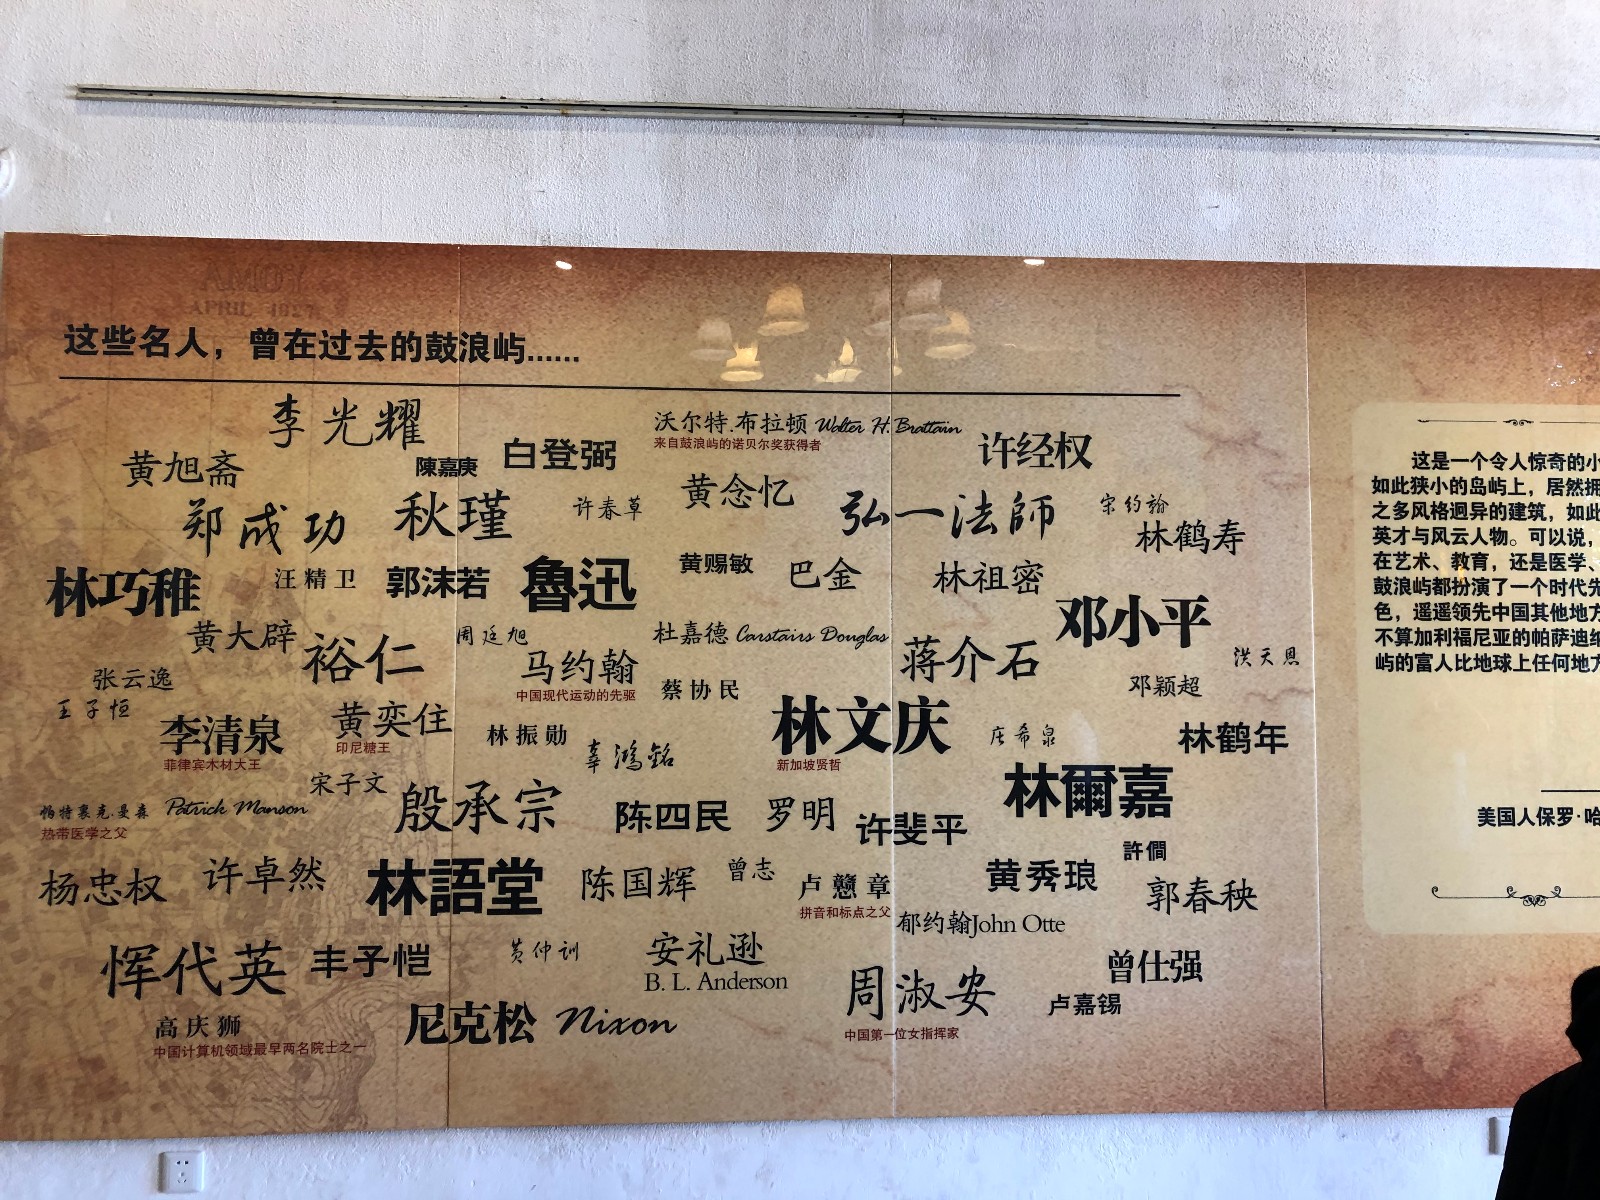 AMOY
APRIL 1927
这些名人，曾在过去的鼓浪屿......
李光耀
沃尔特.布拉顿 Walter H. Brattain
来自鼓浪屿的诺贝尔奖获得者
许经权
白登弼
陳嘉庚
黄旭斋
黄念忆
郑成功
秋瑾
许春草
弘一法師
宋约翰
林鹤寿
林巧稚
汪精卫
郭沫若
魯迅
黄赐敏
巴金
林祖密
邓小平
黄大辟
裕仁
周廷旭
杜嘉德 Carstairs Douglas
蒋介石
洪天恩
马约翰
中国现代运动的先驱
张云逸
蔡协民
邓颖超
王子恒
李清泉
菲律宾木材大王
黄奕住
印尼糖王
林振勋
辜鴻銘
林文庆
新加坡贤哲
庄希泉
林鹤年
宋子文
林爾嘉
帕特裏克.曼森 Patrick Manson
热带医学之父
殷承宗
陈四民
罗明
许斐平
許僩
杨忠权
许卓然
林語堂
陈国辉
曾志
卢戆章
拼音和标点之父
黄秀琅
郭春秧
郁约翰John Otte
恽代英
丰子恺
黄仲训
安礼逊
B. L. Anderson
曾仕强
周淑安
中国第一位女指挥家
卢嘉锡
高庆狮
中国计算机领域最早两名院士之一
尼克松 Nixon
这是一个令人惊奇的小
如此狭小的岛屿上，居然拥
之多风格迥异的建筑，如此
英才与风云人物。可以说，
在艺术、教育，还是医学、
鼓浪屿都扮演了一个时代先
色，遥遥领先中国其他地方
不算加利福尼亚的帕萨迪纳
屿的富人比地球上任何地方
美国人保罗·哈